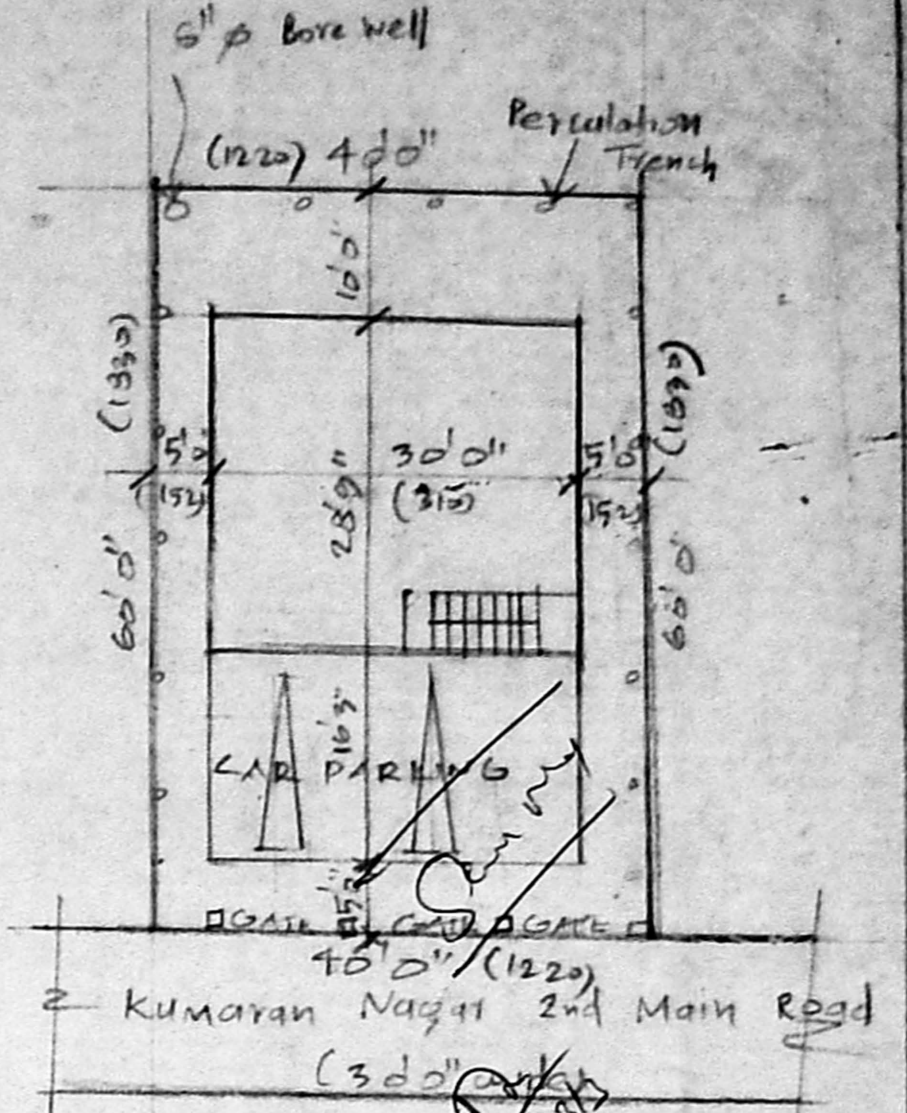 6" φ Bore well
Perculation
Trench
(1220) 40'0"
10'0"
(1830)
(1830)
5'0"
(152)
28'9"
30'0"
5'0"
(152)
60'0"
60'0"
16'3"
CAR PARKING
GATE GATE GATE
40'0" (1220)
Kumaran Nagar 2nd Main Road